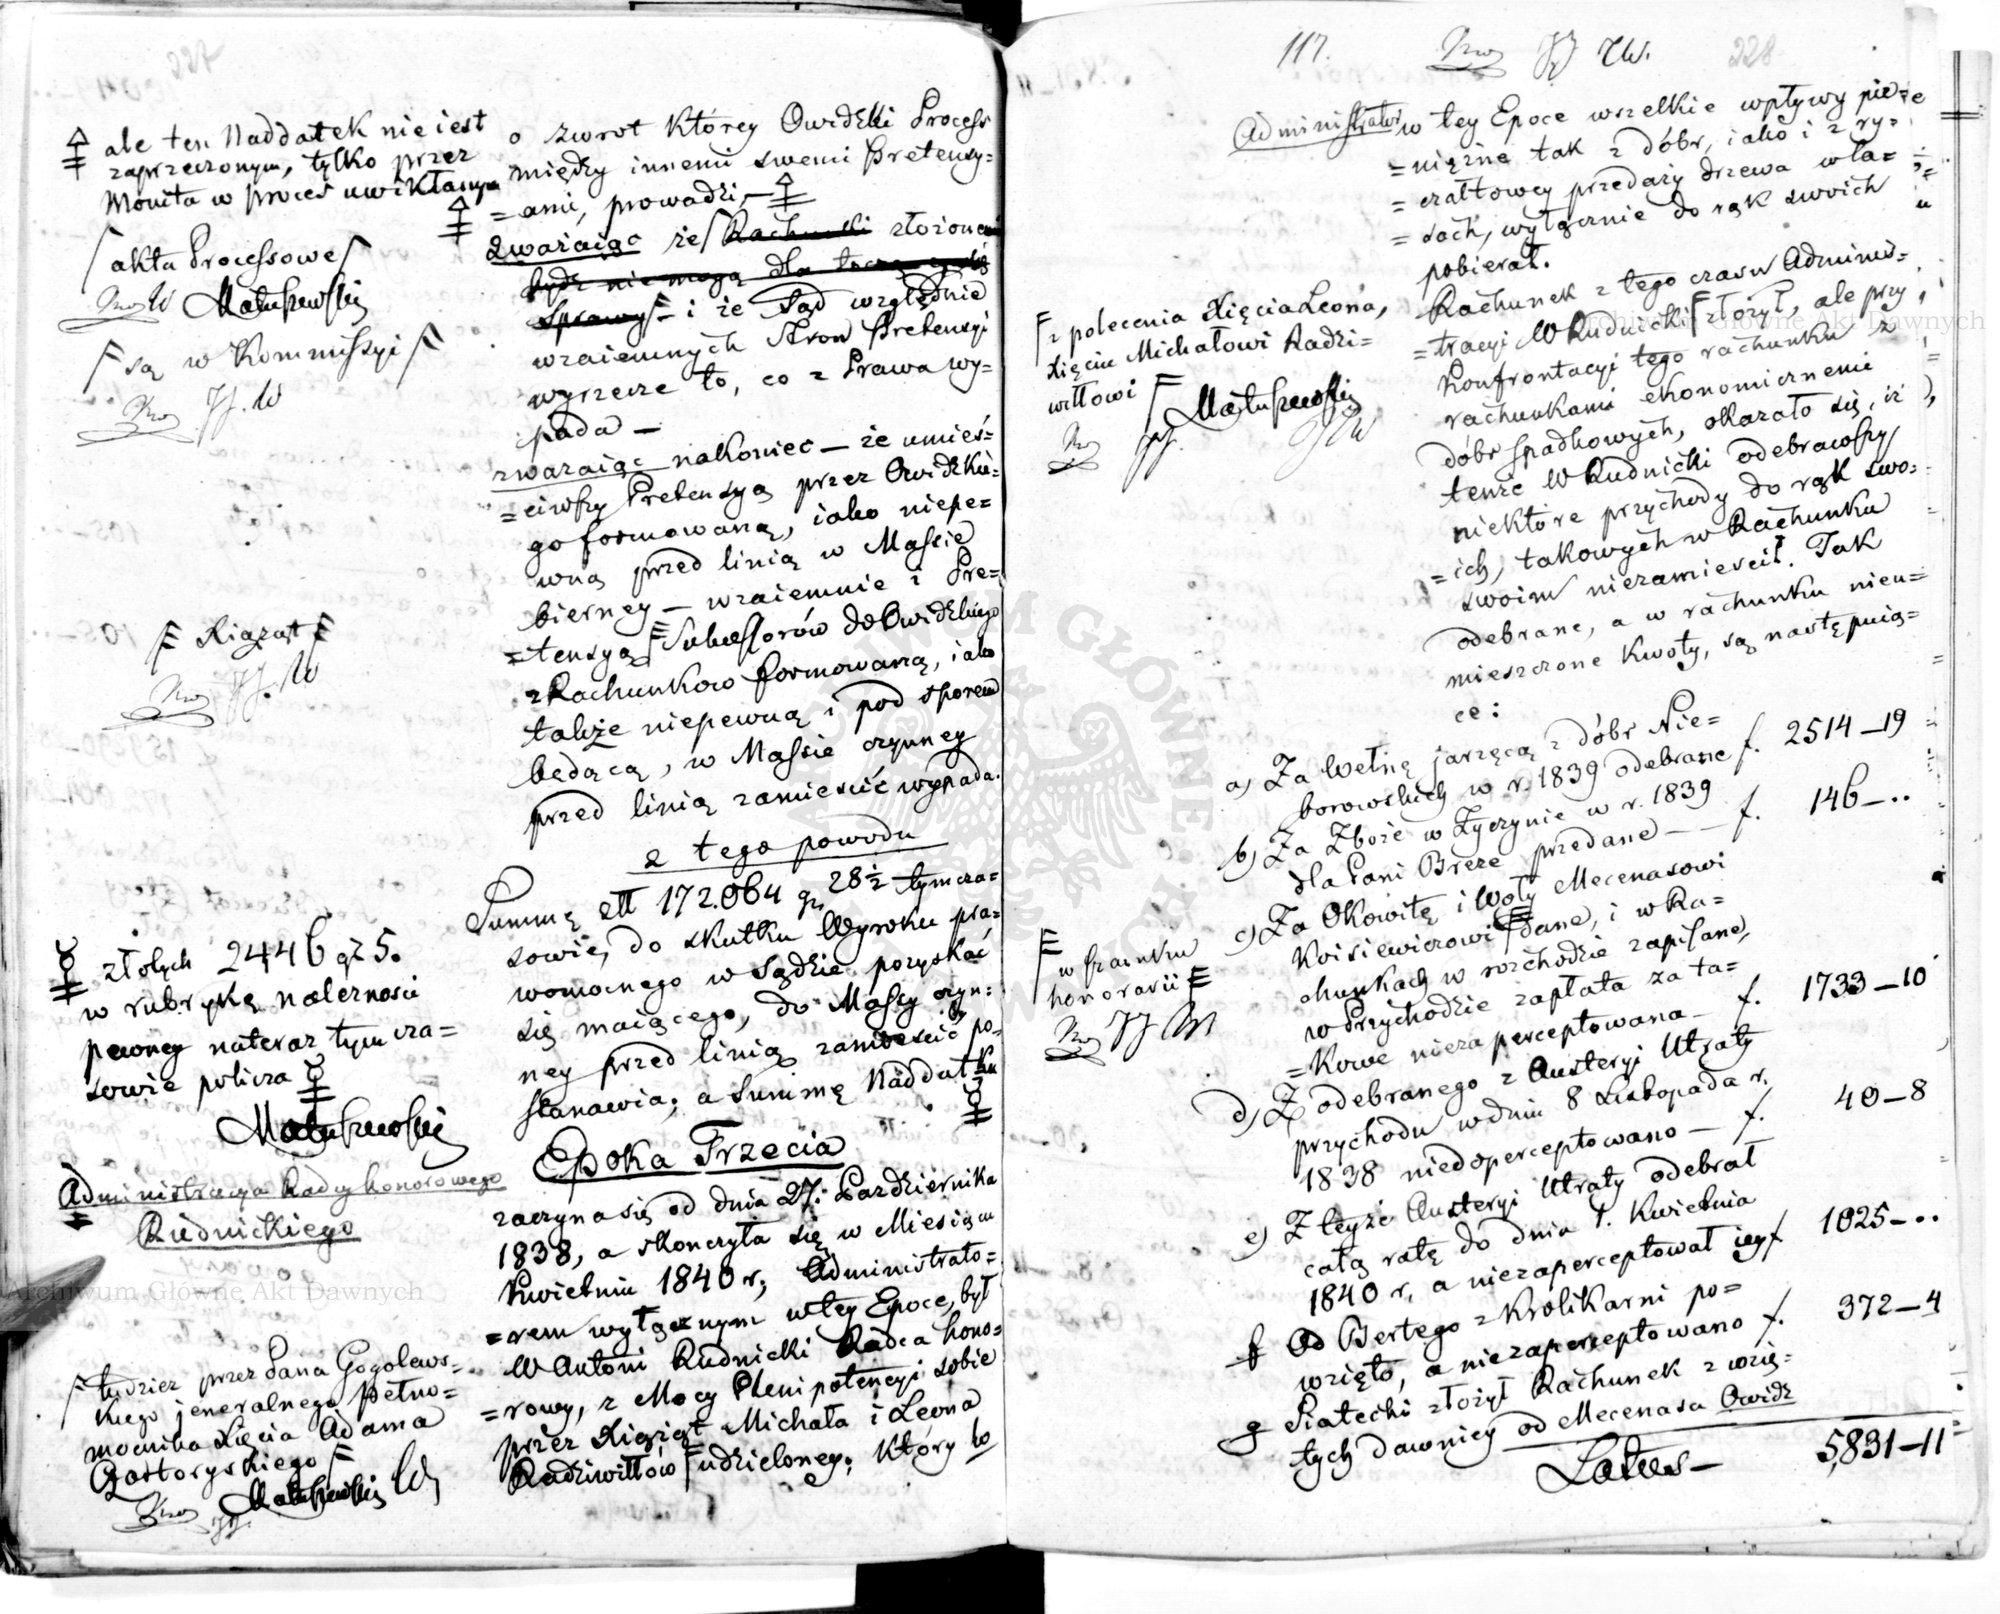 227
ale ten Naddatek nie iest
zaprzeczonym, tylko przez
Monita w proces uwikłanym
akta Processowe
Matuszewski
są w Kommissyi
JJ. W
Xiążąt
JJ. W
złotych 2446 gr 5.
w rubrykę należności
pewney nateraz tymcza=
sowie policza
Matuszewski
Administracya Radcy honorowego
Rudnickiego
tudzież przez Pana Gogolews=
kiego jeneralnego Pełno=
mocnika Xięcia Adama
Czartoryskiego
Matuszewski
o zwrot którey Owidzki Process
między innemi swemi Pretensy=
=ami, prowadzi,—
Zważaiąc że Rachunki złożone
bydź nie mogą dla
Sprawy i że Sąd względnie
wzaiemnych Stron Pretensyi
wyrzecze to, co z Prawa wy=
pada —
zważaiąc nakoniec — że umieś=
=ciwszy Pretensyą przez Owidzkie=
go formowaną, iako niepe=
wną przed linią w Massie
bierney — wzaiemnie i Pre=
=tensyą Sukcessorów do Owidzkiego
z Rachunkow formowaną, iako
także niepewną i pod sporem
będącą, w Massie czynney
przed linią zamieścić wypada.
z tego powodu
Summę złł 172.064 gr 28½ tymcza=
sowie, do skutku Wyroku pra=
womocnego w Sądzie pozyskać
się maiącego, do Massy czyn=
ney przed linią zamieścić by po=
stanawia; a Summę Naddatku
Epoka Trzecia
zaczyna się od dnia 27. Pazdziernika
1838, a skonczyła się w Miesiącu
Kwietniu 1840 r; Administrato=
=rem wyłącznym w tey Epoce, był
W Antoni Rudnicki Radca hono=
=rowy, z Mocy Plenipotencyi sobie
przez Xiążąt Michała i Leona
Radziwiłłów udzieloney; który to
117. JJ JW. 228
Administrator w tey Epoce wszelkie wpływy pie=
=niężne tak z dóbr, iako i z ry=
=czałtowey przedaży drzewa w la=
=sach, wyłącznie do rąk swoich
pobierał.
Rachunek z tego czasu Adminis=
=tracyi W Rudnicki złożył, ale przy
Konfrontacyi tego rachunku z
rachunkami ekonomicznemi
dóbr spadkowych, okazało się, iż
tenże W Rudnicki odebrawszy
niektóre przychody do rąk swo=
=ich, takowych w Rachunku
swoim niezamieścił. Tak
odebrane, a w rachunku nieu=
mieszczone kwoty, są następuią=
ce:
z polecenia Xięcia Leona,
Xięciu Michałowi Radzi=
wiłłowi
Matuszewski
JJ. JW
a) Za wełnę jarzęcą z dóbr Nie=
borowskich w r. 1839 odebrane f. 2514—19
b) Za Zboże w Życzynie w r. 1839
dla Pani Breze przedane — — f. 146—..
c) Za Okowitę i Woły Mecenasowi
Koisiewiczowi dane, i w Ra=
chunkach w rozchodzie zapisane,
w Przychodzie zapłata za ta=
=kowe niezaperceptowana — f. 1733—10
w fracntu
honorarii
JJ W
d) Z odebranego z Austeryi Utraty
przychodu w dniu 8 Listopada r.
1838 niedoperceptowano — f. 40—8
e) Z teyże Austeryi Utraty odebrał
całą ratę do dnia 1. Kwietnia
1840 r, a niezaperceptował iey f 1025—..
f Od Bertego z Królikarni po=
wzięto, a niezaperceptowano f. 372—4
g Piatecki złożył Rachunek z wzię=
tych dawniey od Mecenasa Owidz
Latus — 5,831—11
Archiwum Główne Akt Dawnych
Archiwum Główne Akt Dawnych